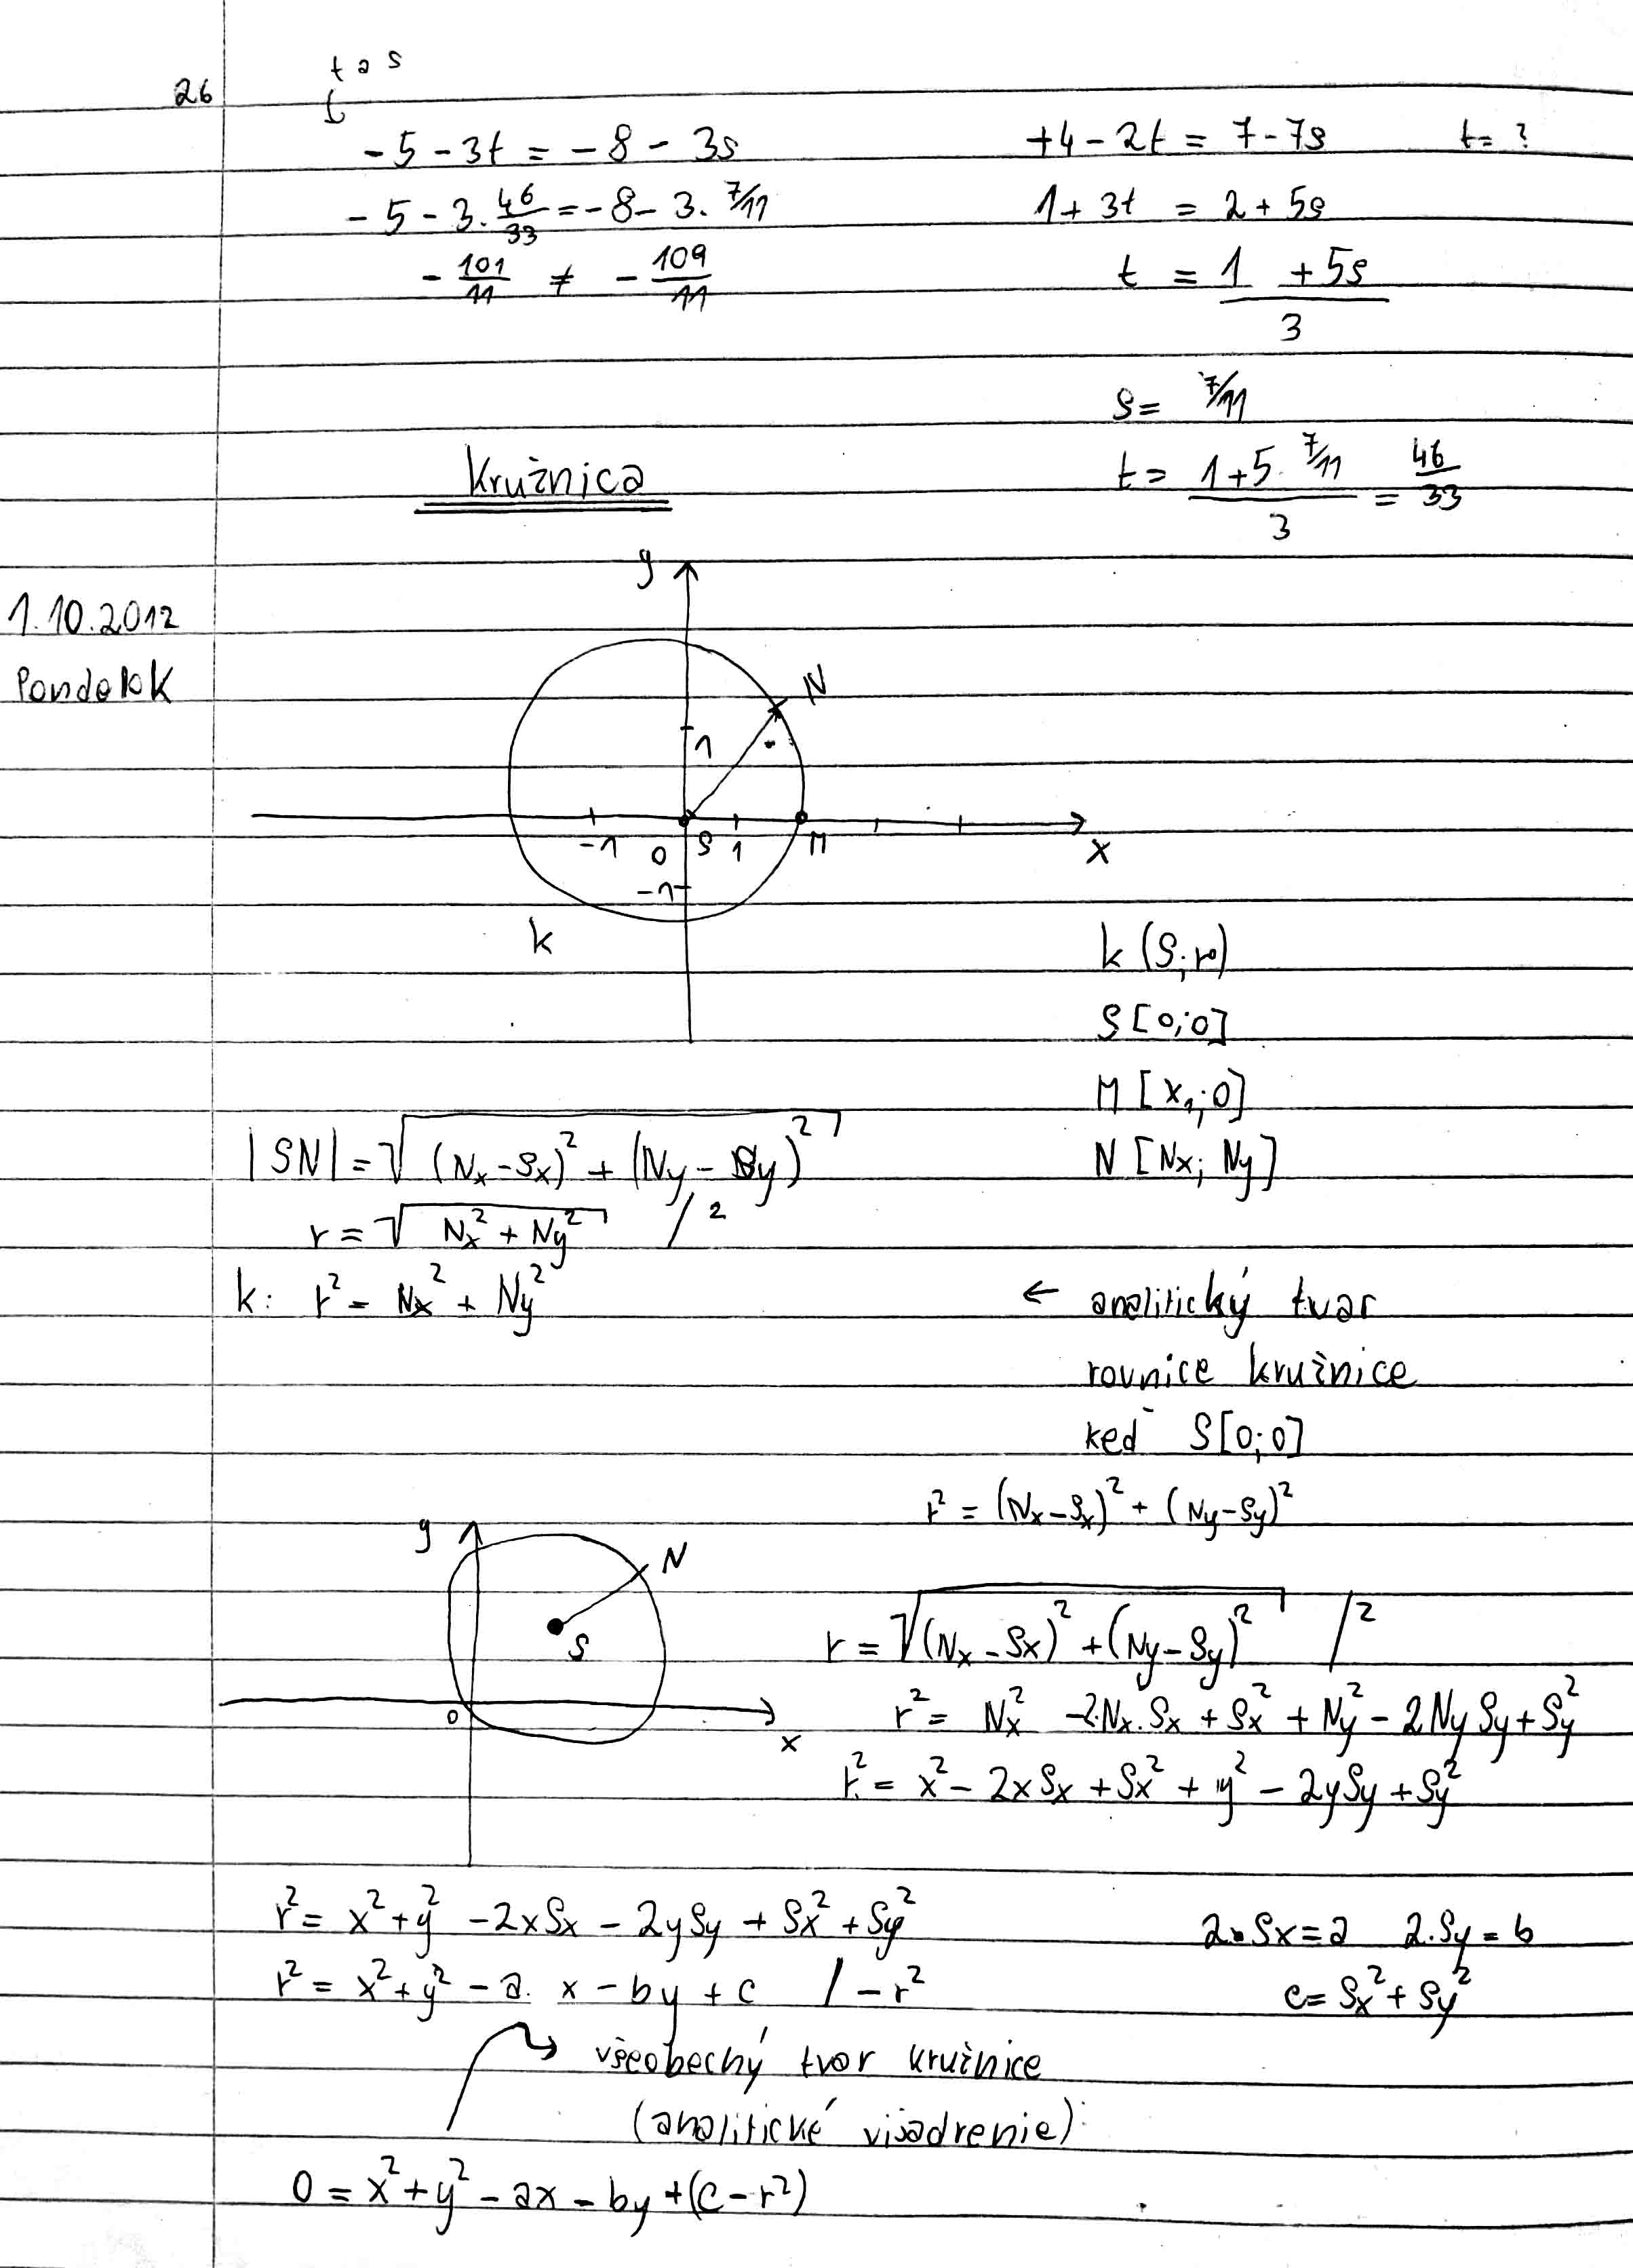 26
t a s
-5 - 3t = -8 - 3s
+4 - 2t = 7 - 7s t = ?
-5 - 3. 46/33 = -8 - 3. 7/11
1 + 3t = 2 + 5s
-101/11 ≠ -109/11
t = (1 + 5s)/3
s = 7/11
t = (1 + 5. 7/11)/3 = 46/33
Kružnica
1.10.2012
Pondelok
y
N
1
-1 0 S 1 M
x
-1
k
k (S; r)
S [0; 0]
M [x₁; 0]
|SN| = √((Nx - Sx)² + (Ny - Sy)²)
N [Nx; Ny]
r = √(Nx² + Ny²) /²
k: r² = Nx² + Ny²
← analitický tvar
rovnice kružnice
keď S[0; 0]
r² = (Nx - Sx)² + (Ny - Sy)²
y
N
S
0
x
r = √((Nx - Sx)² + (Ny - Sy)²) /²
r² = Nx² - 2.Nx.Sx + Sx² + Ny² - 2NySy + Sy²
r² = x² - 2xSx + Sx² + y² - 2ySy + Sy²
r² = x² + y² - 2xSx - 2ySy + Sx² + Sy²
2.Sx = a 2.Sy = b
r² = x² + y² - a. x - by + c / - r²
c = Sx² + Sy²
všeobecný tvar kružnice
(analitické visadrenie)
0 = x² + y² - ax - by + (c - r²)